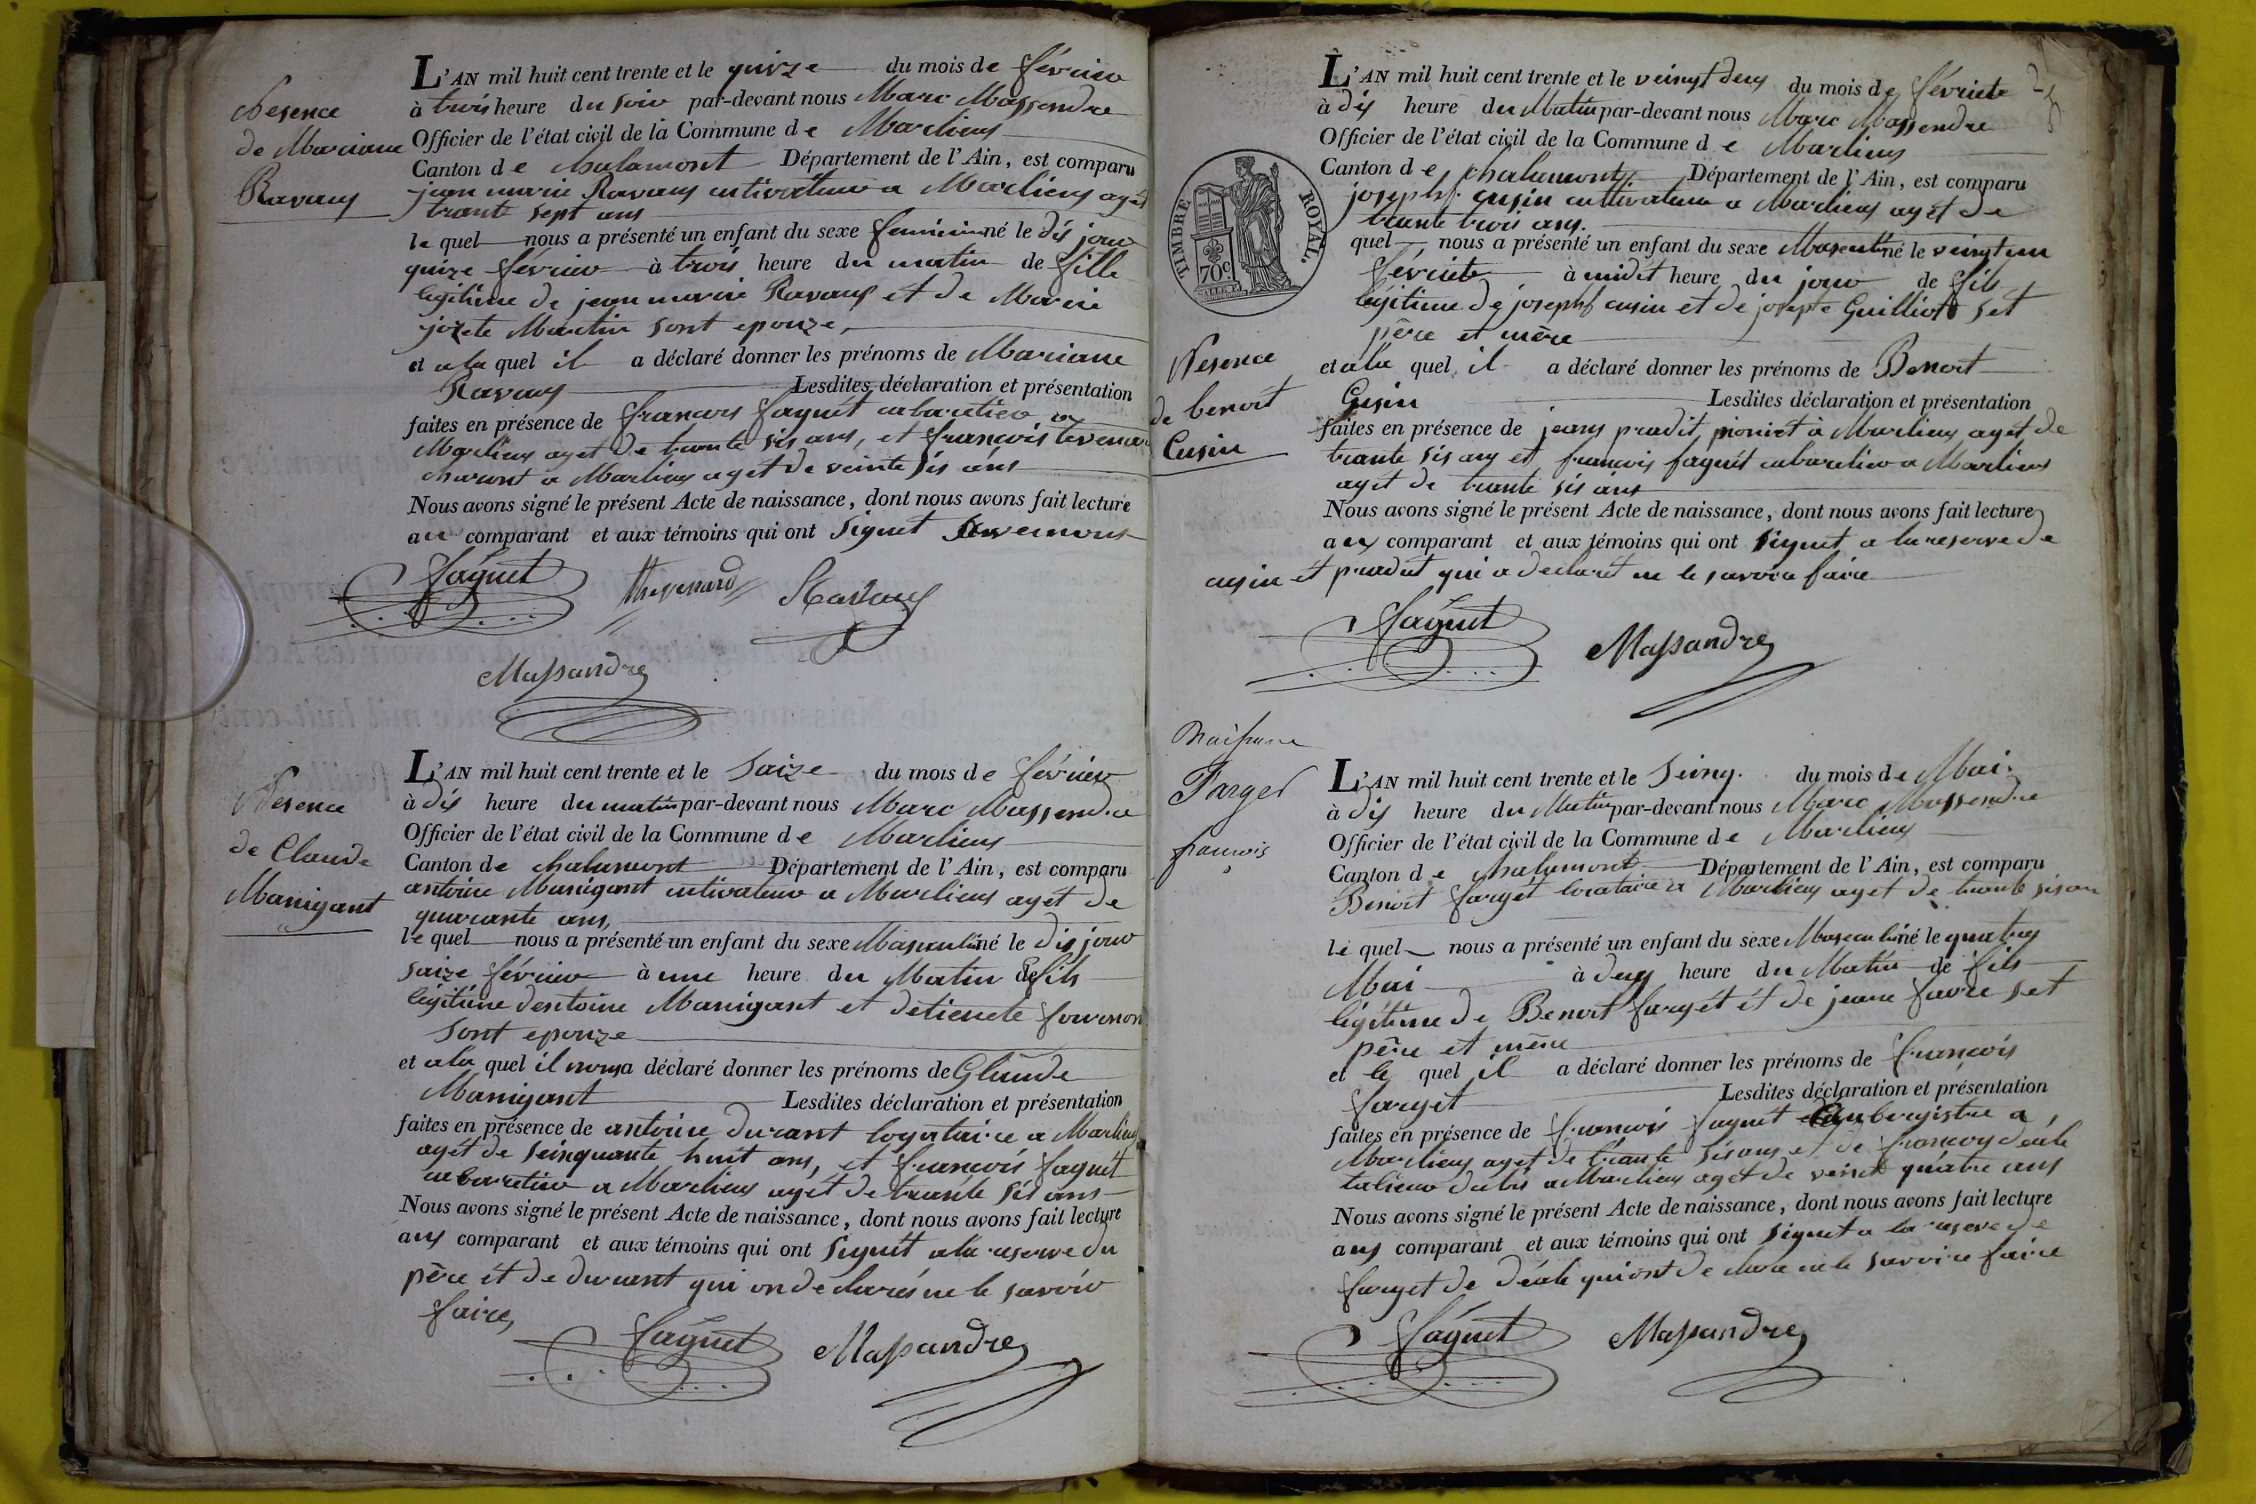 Nesence
de Mariane
Ravaux
L'AN mil huit cent trente et le quinze du mois de février
à trois heure du soir par-devant nous Marc Massondre
Officier de l'état civil de la Commune de Marlieux
Canton de chalamont Département de l'Ain, est comparu
jean marie Ravaux cutivateur a Marlieux aget
trante sept ans
le quel nous a présenté un enfant du sexe feminin né le dis jour
quize février à trois heure du matin de fille
legitime de jean marie Ravaux et de Marie
jozete Martin sont epouze
et a la quel il a déclaré donner les prénoms de Mariane
Ravaux Lesdites déclaration et présentation
faites en présence de francois faguet cabaretier a
Marlieux aget de trante sis ans, et francois tevenar
charont a Marlieux aget de veinte sis ans
Nous avons signé le présent Acte de naissance, dont nous avons fait lecture
au comparant et aux témoins qui ont signet
faguet Thevenard Ravaux
Massandre
Nesence
de Claude
Manigant
L'AN mil huit cent trente et le saize du mois de février
à dis heure du matin par-devant nous Marc Massondre
Officier de l'état civil de la Commune de Marlieux
Canton de chalamont Département de l'Ain, est comparu
antoine Manigant cutivateur a Marlieux aget de
quarante ans,
le quel nous a présenté un enfant du sexe Masculin né le dis jour
saize février à une heure du Matin de fils
légitime dentoine Manigant et detienete
sont epouze
et a la quel il nous a déclaré donner les prénoms de Glaude
Manigant Lesdites déclaration et présentation
faites en présence de antoine durant logataire a Marlieux
aget de seinquante huit ans, et francois faguet
cabaretier a Marlieux aget de trante sis ans
Nous avons signé le présent Acte de naissance, dont nous avons fait lecture
aux comparant et aux témoins qui ont signet a la reserve du
père et de durant qui on declarés ne le savoir
faire,
faguet Massandre
TIMBRE ROYAL.
70c
Nesence
de benoit
Cusin
L'AN mil huit cent trente et le veingt deux du mois de février
à dis heure du Matin par-devant nous Marc Massondre
Officier de l'état civil de la Commune de Marlieux
Canton de chalamont Département de l'Ain, est comparu
joseph cusin cultivateur a Marlieux aget de
trante trois ans.
quel nous a présenté un enfant du sexe Masculin né le veingt un
février à midet heure du jour de fils
légitime de joseph cusin et de josepte Guilliot set
père et mère
et a la quel il a déclaré donner les prénoms de Benoit
Cusin Lesdites déclaration et présentation
faites en présence de jean pradit, a Marlieux aget de
trante sis ans et francois faguet cabaretier a Marlieux
aget de trante sis ans
Nous avons signé le présent Acte de naissance, dont nous avons fait lecture
aux comparant et aux témoins qui ont signet a la reserve de
cusin et pradit qui a declarét ne le savoir faire
faguet Massandre
Naissance
Farget
francois
L'AN mil huit cent trente et le seinq. du mois de Mai.
à dis heure du Matin par-devant nous Marc Massondre
Officier de l'état civil de la Commune de Marlieux
Canton de chalamont Département de l'Ain, est comparu
Benoit farget locataire a Marlieux aget de trante sis an
le quel nous a présenté un enfant du sexe Masculin né le quatre
Mai à deux heure du Matin de fils
légitime de Benoit farget et de jeane favre set
père et mère
et le quel il a déclaré donner les prénoms de francois
farget Lesdites déclaration et présentation
faites en présence de francois faguet aubergistre a
Marlieux aget de trante sis ans et de francoy
talieur dabis a Marlieux aget de veinte quatre ans
Nous avons signé le présent Acte de naissance, dont nous avons fait lecture
aux comparant et aux témoins qui ont signet a la reserve de
farget de qui ont declare ne le savoire faire
faguet Massandre